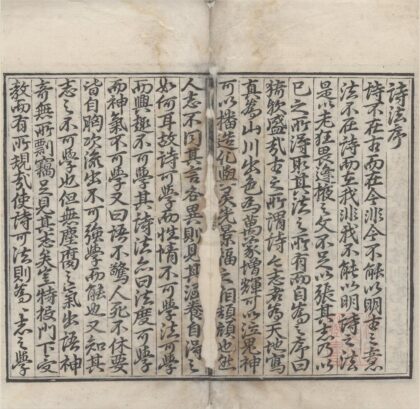 詩法序
詩不在古而在今非今不能以明古之意
法不在詩而在我非我不能以明詩之法
是以老狂畏逢掖之文不足以張其志乃以
己之所得取其法之所有而自為之序曰
猗歟盛哉古之所謂詩也志若為天地寫
真為山川出色為萬象增輝可以泣鬼神
可以造化與夫光景之相頡頏也然
人志不同其言各異則見其涵養自得之
如何耳故詩可學而性情不可學法可學
而興趣不可學其詩法亦曰法度可學
而神氣不可學又曰語不驚人死不休要
皆自胸次流出不可強學而能也又知其
志之不可學也但無塵腐之氣出語神
奇無所剽竊見其志矣生特授門下受
教而有所規哉使詩可法則為之志之學